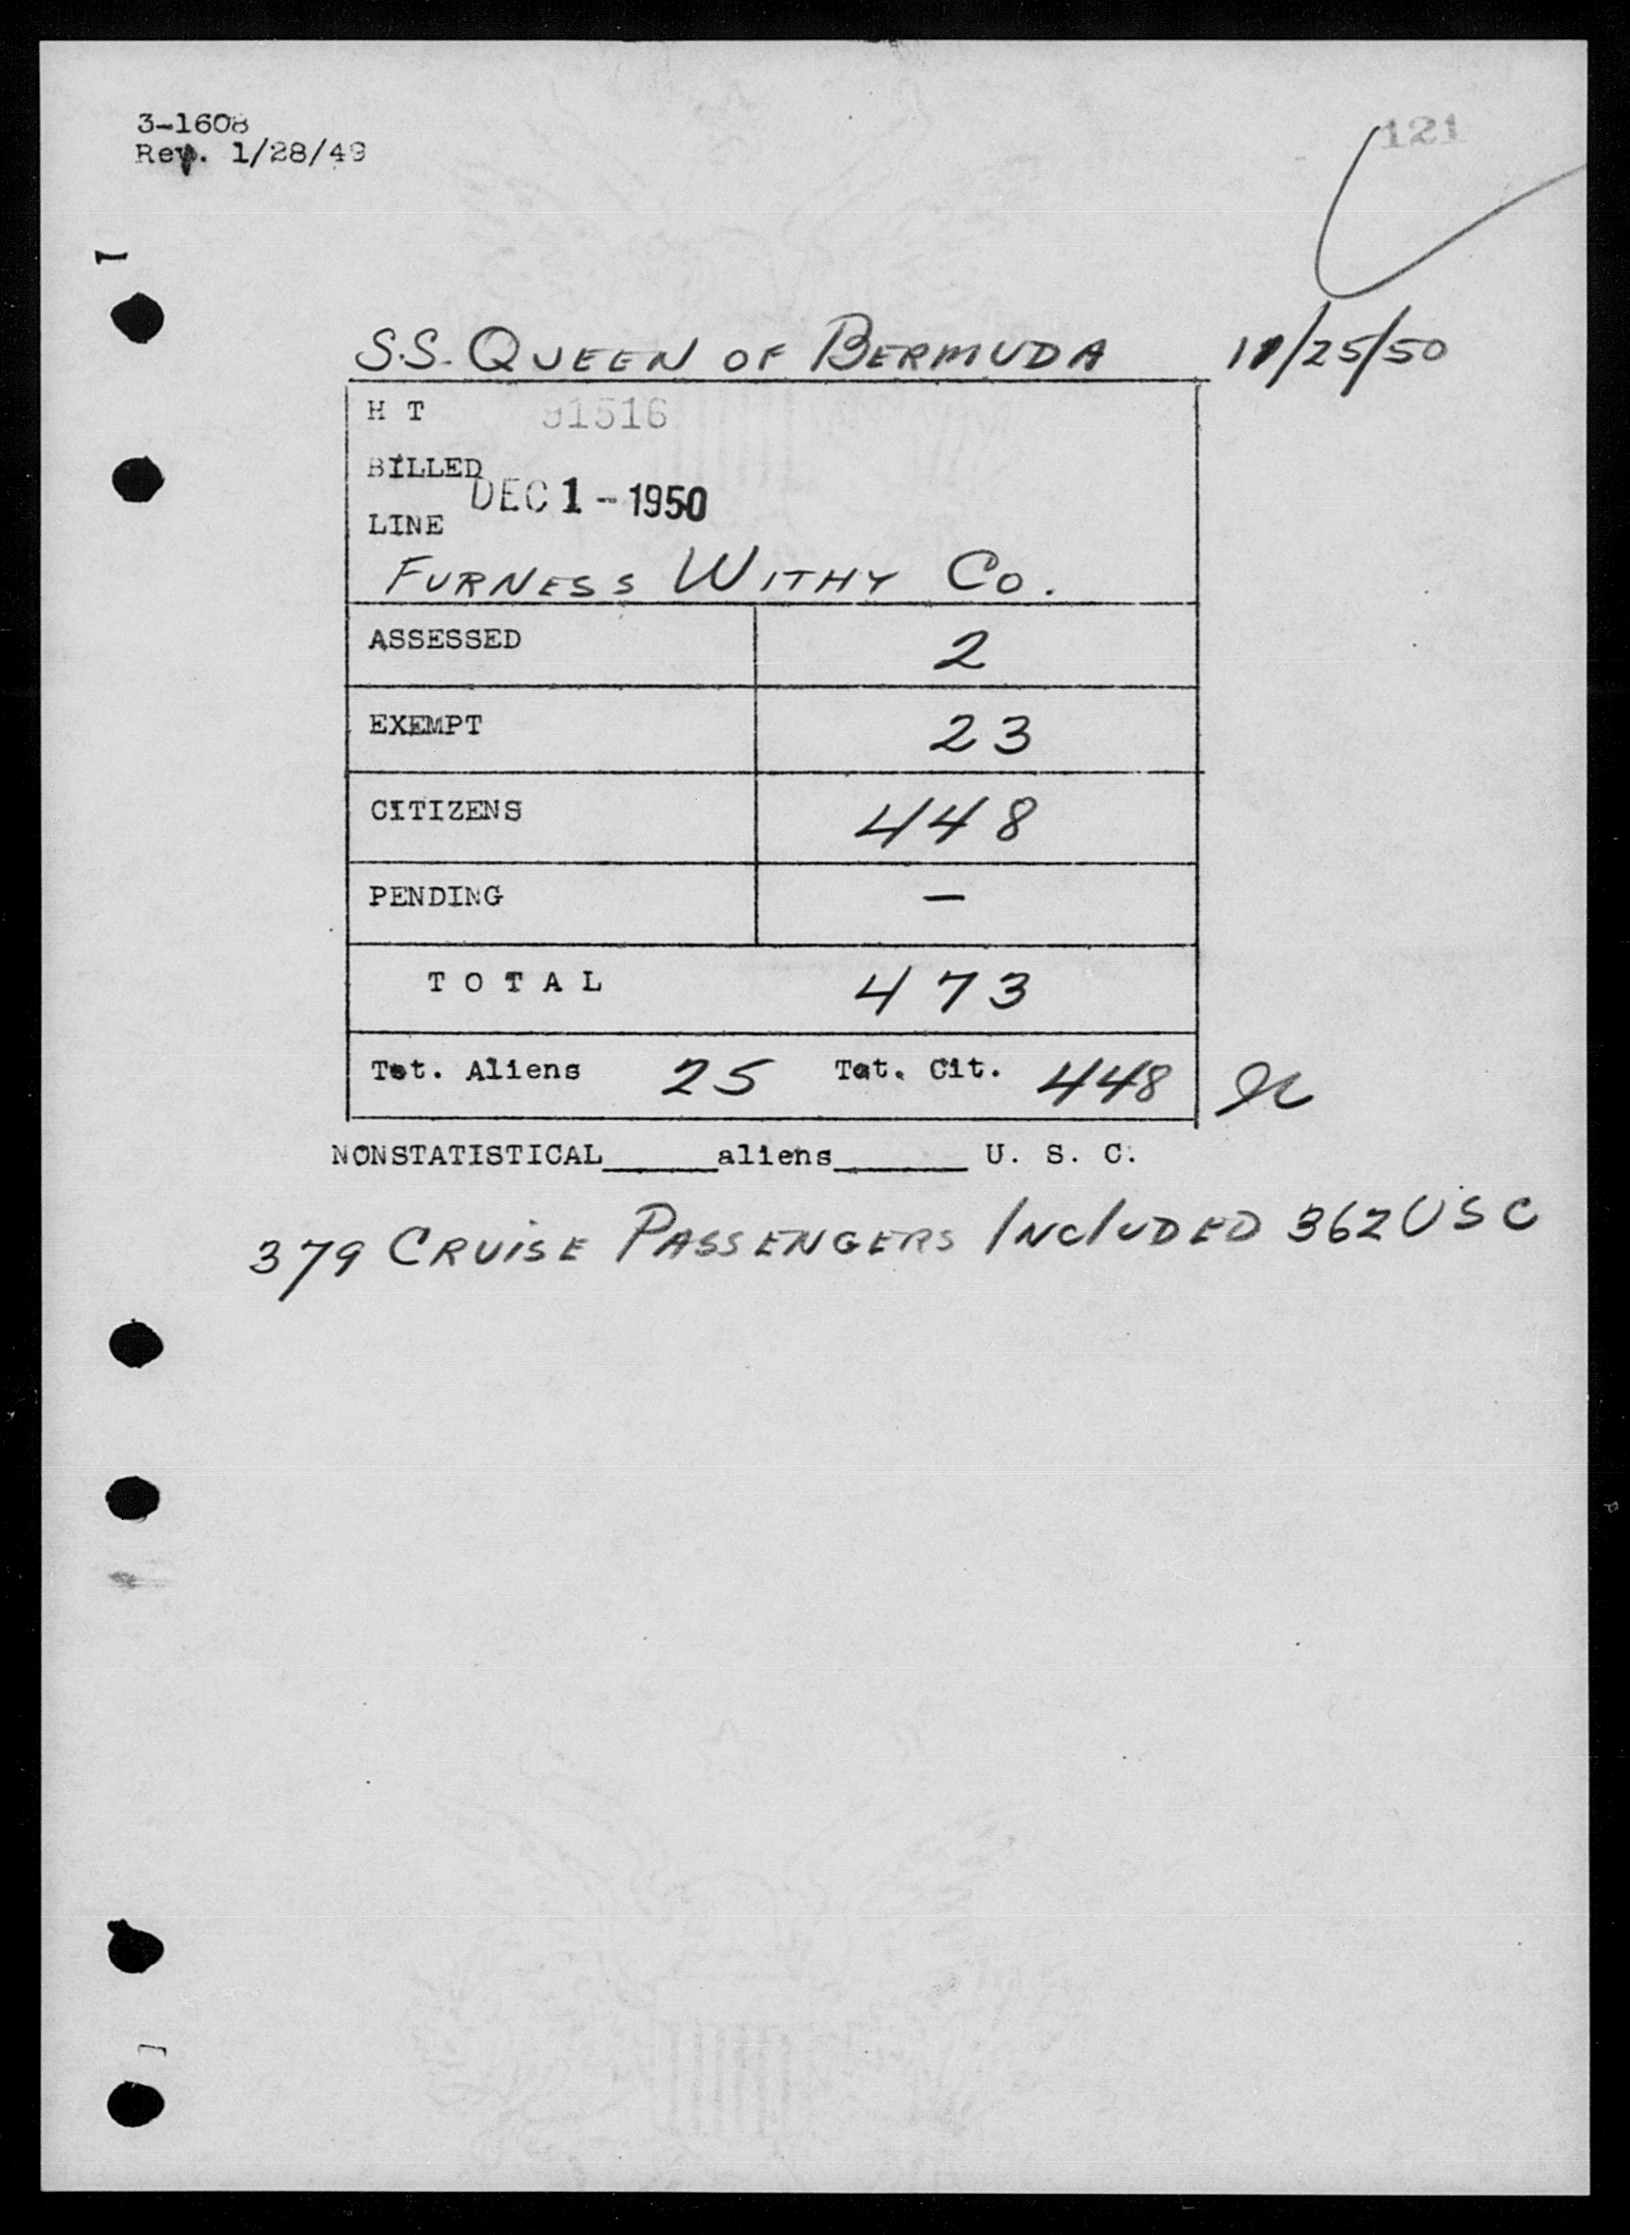 3-1608
Rev. 1/28/49
121
S.S. QUEEN OF BERMUDA 11/25/50
H T 91516
BILLED
DEC 1 - 1950
LINE
FURNESS WITHY CO.
ASSESSED 2
EXEMPT 23
CITIZENS 448
PENDING —
T O T A L 473
Tot. Aliens 25 Tot. Cit. 448
NONSTATISTICAL______aliens_______ U. S. C.
379 CRUISE PASSENGERS INCLUDED 362 USC